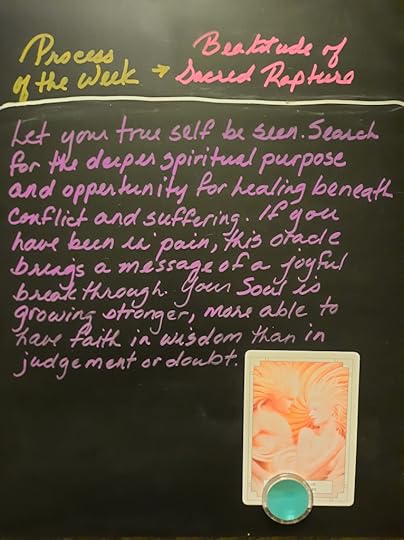 Process of the Week → Beatitude of Sacred Rapture
Let your true self be seen. Search
for the deeper spiritual purpose
and opportunity for healing beneath
conflict and suffering. If you
have been in pain, this oracle
brings a message of a joyful
breakthrough. Your Soul is
growing stronger, more able to
have faith in wisdom than in
judgement or doubt.